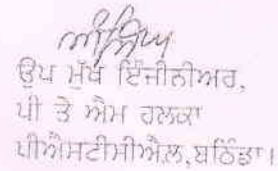 ਉਪ ਮੁੱਖ ਇੰਜੀਨੀਅਰ,
ਪੀ ਤੇ ਐਮ ਹਲਕਾ
ਪੀਐਸਟੀਸੀਐਲ,ਬਠਿੰਡਾ।